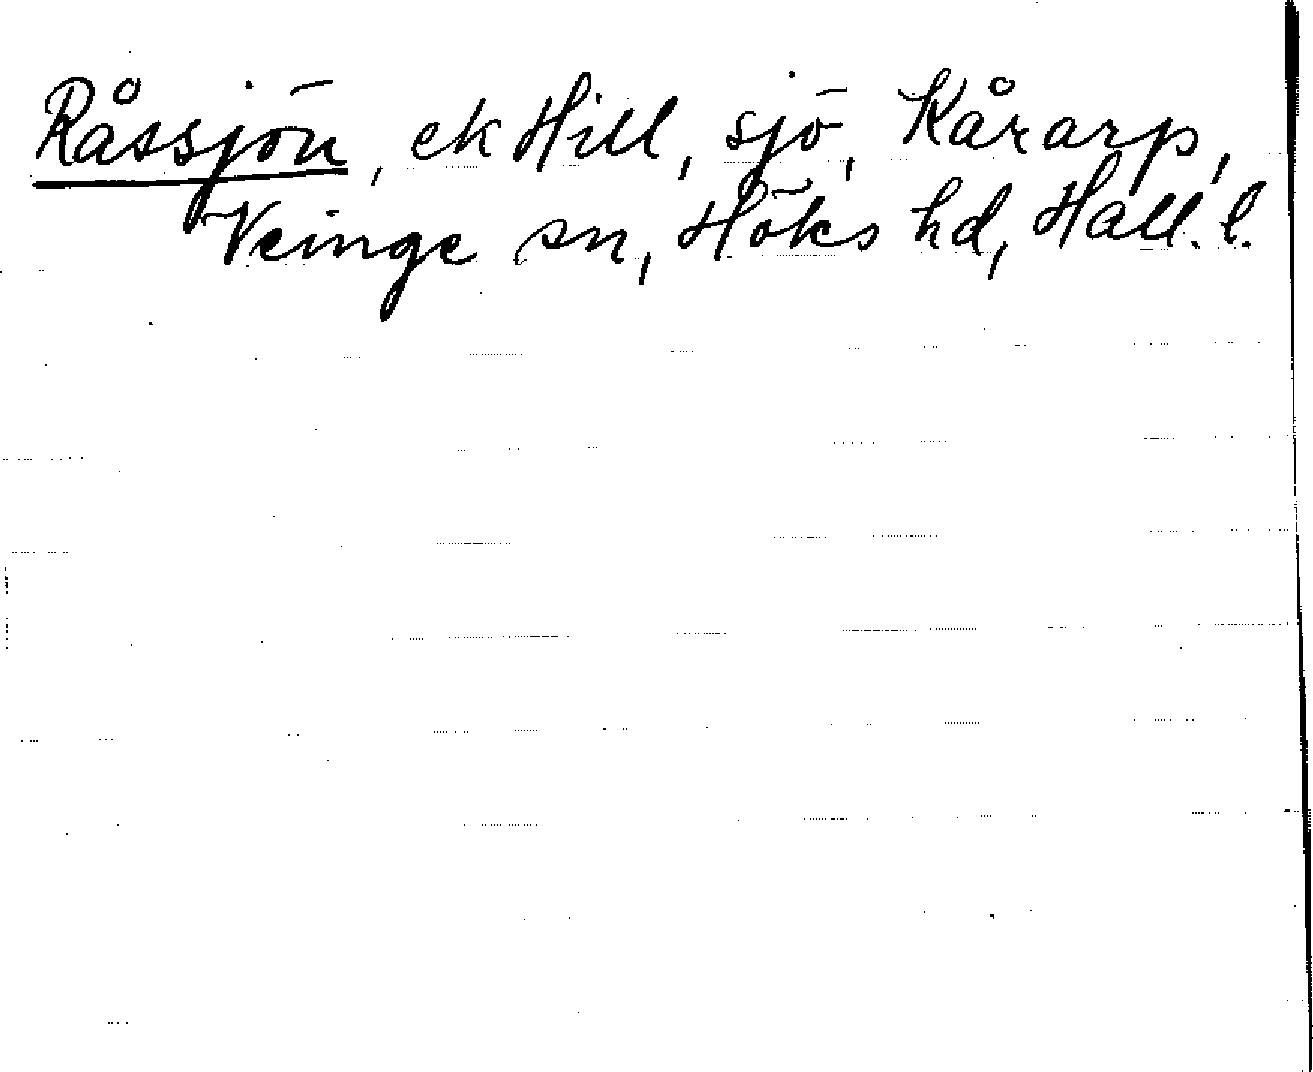 Råssjön, ek Hill, sjö, Kårarp,
Veinge sn, Höks hd, Hall. l.